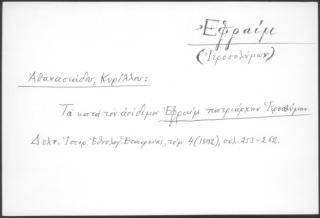 Ἐφραίμ
(Ἱεροσολύμων)
Ἀθανασιάδου, Κυρίλλου:
Τὰ κατὰ τὸν ἀοίδιμον Ἐφραὶμ πατριάρχην Ἱεροσολύμων.
Δελτ. Ἱστορ. Ἐθνολογ. Ἑταιρείας, τόμ 4 (1892), σελ.